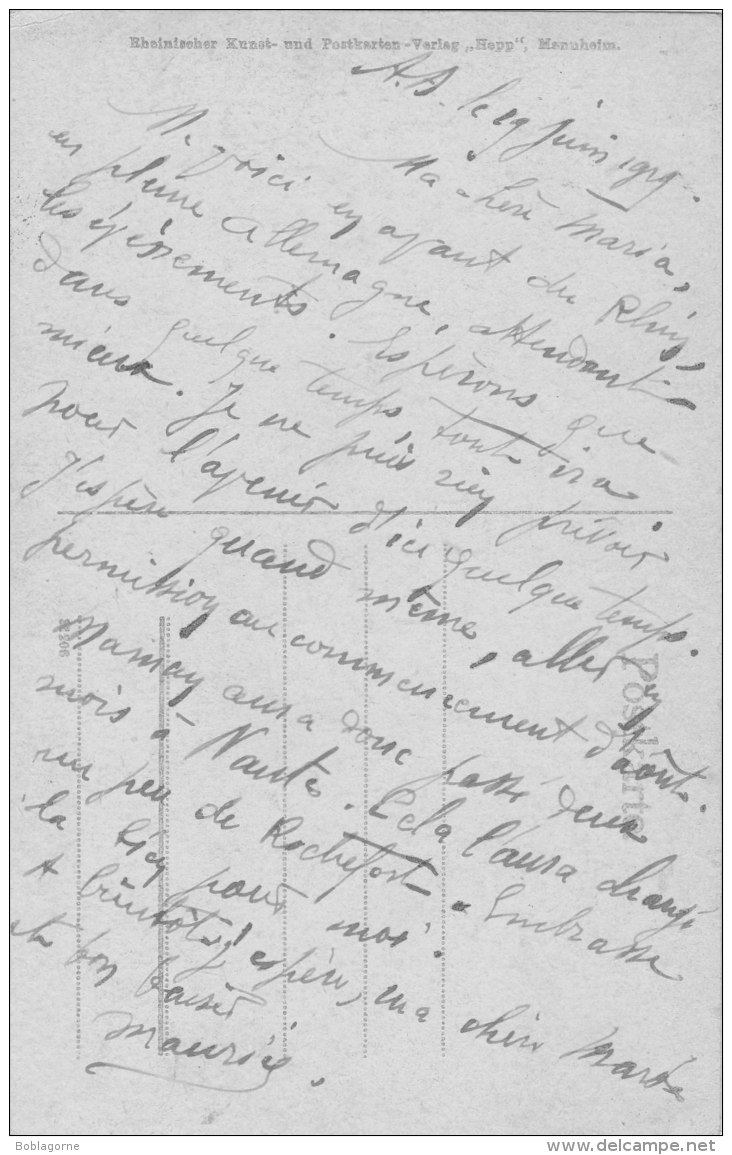 Rheinischer Kunst- und Postkarten-Verlag „Hepp", Mannheim.
le 19 juin 1919.
Ma chère Maria,
Me voici en avant du Rhin,
en pleine Allemagne, attendant
les événements. Espérons que
dans quelque temps, tout ira
mieux. Je ne puis rien prévoir
pour l'avenir d'ici quelque temps.
J'espère quand même, aller en
permission au commencement d'août.
Maman aura donc passé deux
mois à Nantes. Cela l'aura changé
un peu de Rochefort. Embrasse
la bien pour moi.
A bientôt j'espère, ma chère Maria
et bon baiser
Maurice.
Postkarte
Boblagorne
www.delcampe.net